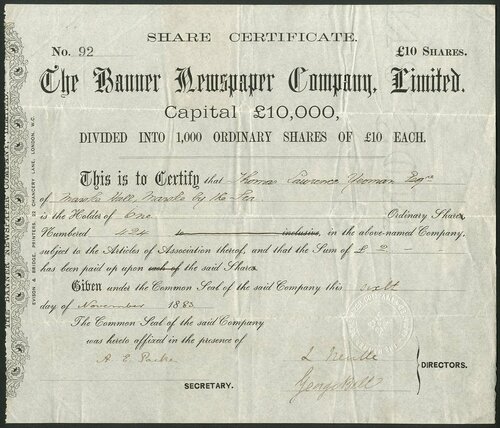 SHARE CERTIFICATE.
No. 92
£10 SHARES.
The Banner Newspaper Company, Limited.
Capital £10,000,
DIVIDED INTO 1,000 ORDINARY SHARES OF £10 EACH.
This is to Certify that Thomas Lawrence Yeoman Esqre
of Marske Hall, Marske by the Sea
is the Holder of One Ordinary Share,
Numbered 424 to inclusive, in the above-named Company,
subject to the Articles of Association thereof, and that the Sum of £ 2
has been paid up upon each of the said Share
Given under the Common Seal of the said Company this sixth
day of November 1883
The Common Seal of the said Company
was hereto affixed in the presence of
A. E.
SECRETARY.
George Bell
DIRECTORS.
EVISON & BRIDGE, PRINTERS, 22 CHANCERY LANE, LONDON, W.C.
THE BANNER NEWSPAPER COMPANY